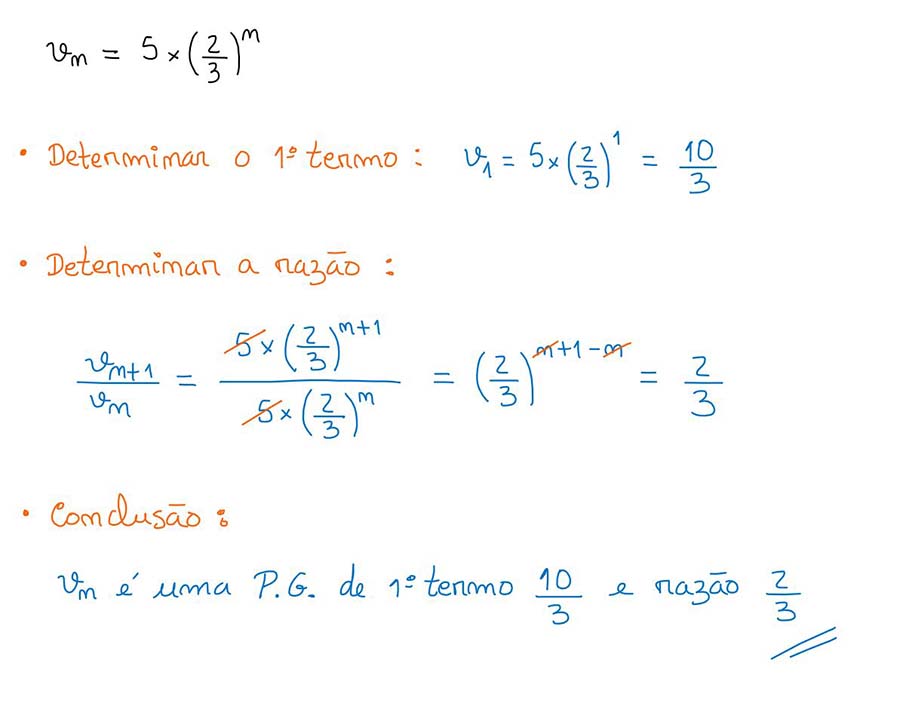 vₙ = 5 × (2/3)ⁿ
• Determinar o 1º termo : v₁ = 5 × (2/3)¹ = 10/3
• Determinar a razão :
vₙ₊₁/vₙ = 5 × (2/3)ⁿ⁺¹ / 5 × (2/3)ⁿ = (2/3)ⁿ⁺¹⁻ⁿ = 2/3
• Conclusão :
vₙ é uma P.G. de 1º termo 10/3 e razão 2/3